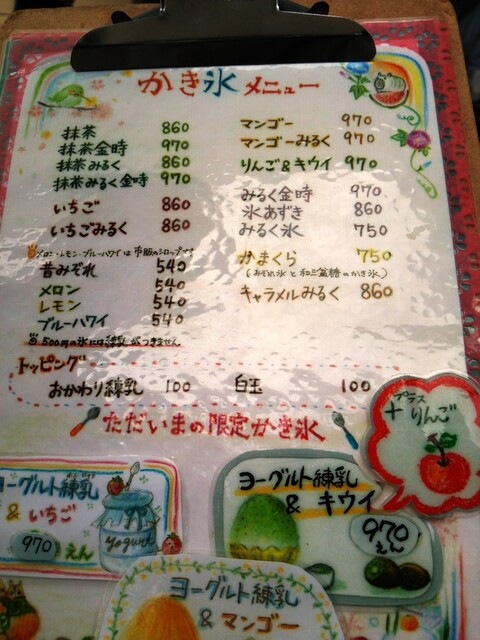 かき氷メニュー
抹茶 860
抹茶金時 970
抹茶みるく 860
抹茶みるく金時 970
いちご 860
いちごみるく 860
メロン・レモン・ブルーハワイは市販のシロップです
昔みぞれ 540
メロン 540
レモン 540
ブルーハワイ 540
500円の氷には練乳がつきません
マンゴー 970
マンゴーみるく 970
りんご&キウイ 970
みるく金時 970
氷あずき 860
みるく氷 750
かまくら 750
(みぞれ氷と和三盆糖のかき氷)
キャラメルみるく 860
トッピング
おかわり練乳 100 白玉 100
ただいまの限定かき氷
プラス
+りんご
ヨーグルト練乳
&いちご
970えん
Yogurt
ヨーグルト練乳
&キウイ
970
えん
ヨーグルト練乳
&マンゴー